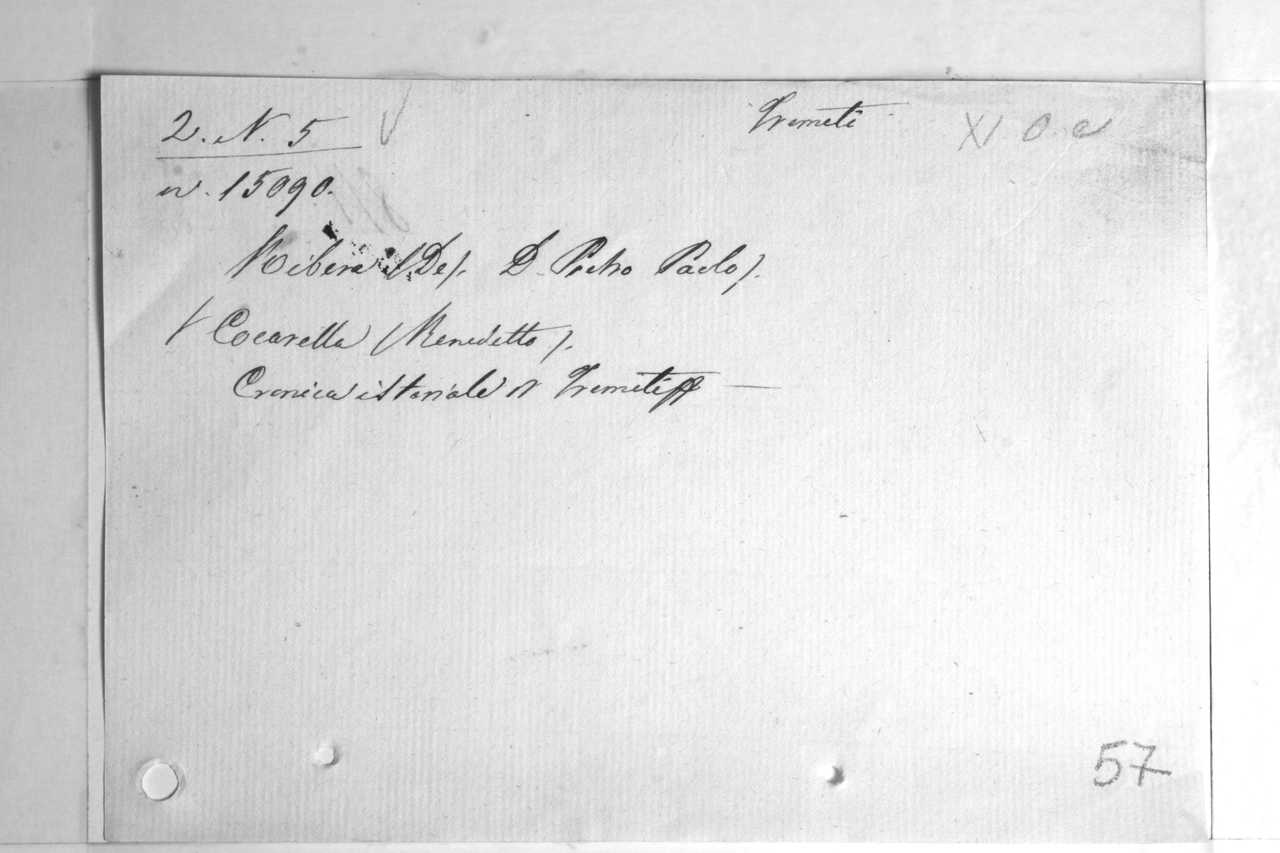 2. N. 5 Tremeti XI O a
n. 15090.
Ribera (De). D. Pietro Paolo).
Cocarella (Benedetto).
Cronica istoriale di Tremiti
57